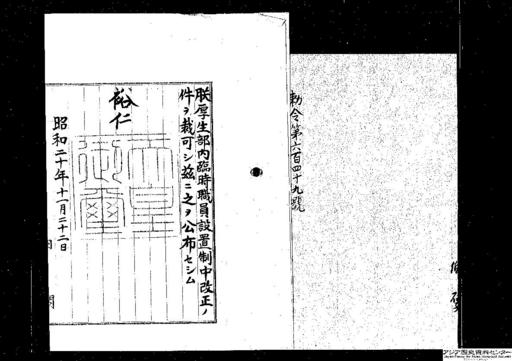 勅令第六百四十九號
朕厚生部内臨時職員設置制中改正ノ
件ヲ裁可シ茲ニ之ヲ公布セシム
裕仁
天皇御璽
昭和二十年十一月二十二日
アジア歴史資料センター